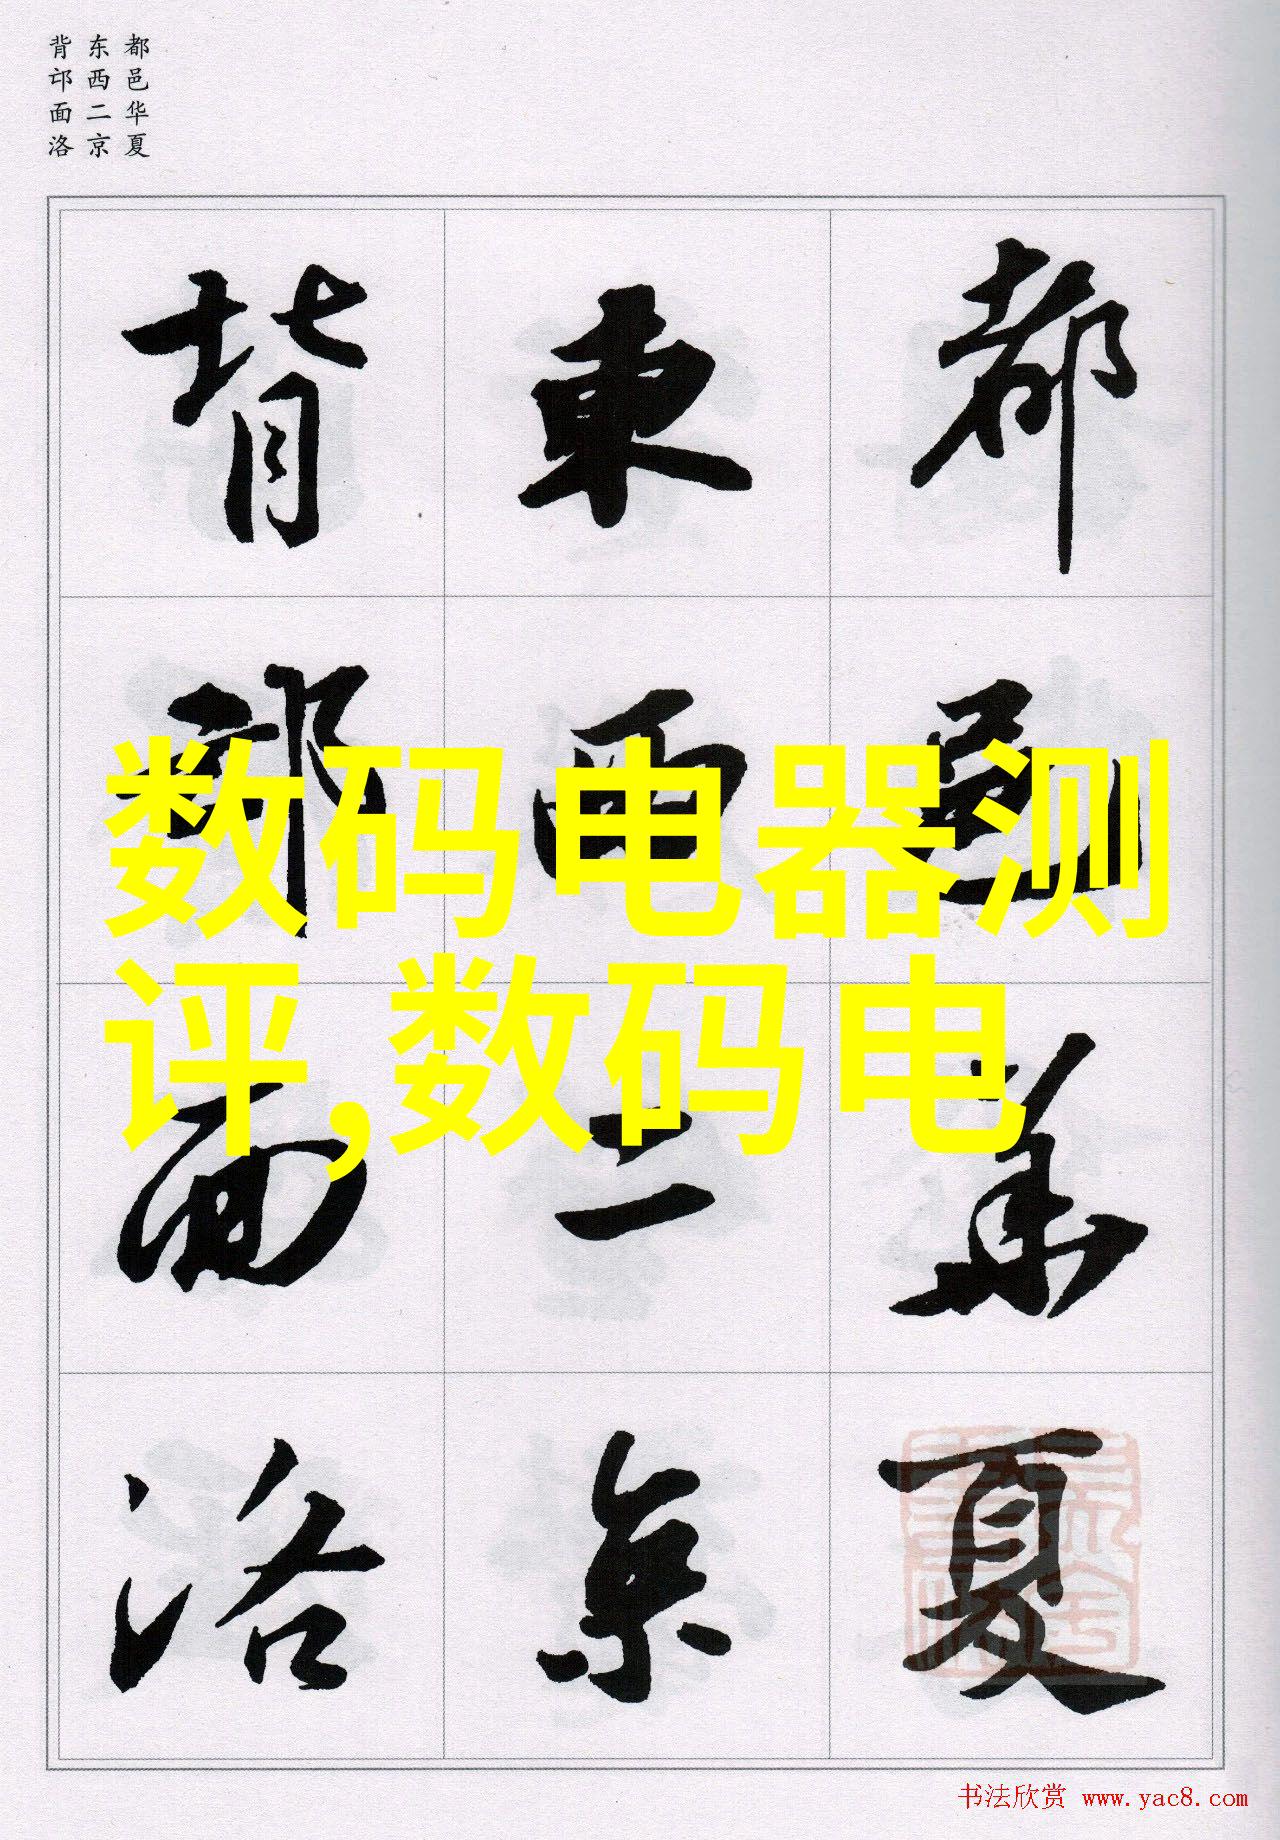 都邑华夏
东西二京
背邙面洛
都邑華夏
東西二京
背邙面洛
数码电器测
评,数码电
书法欣赏 www.yac8.com